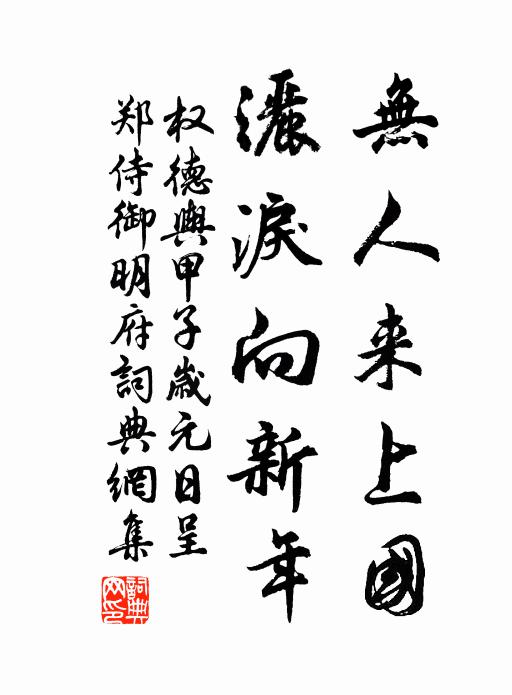 無人来上國
灑淚向新年
权德輿甲子歲元日呈
郑侍御明府詞典網集
詞典網印